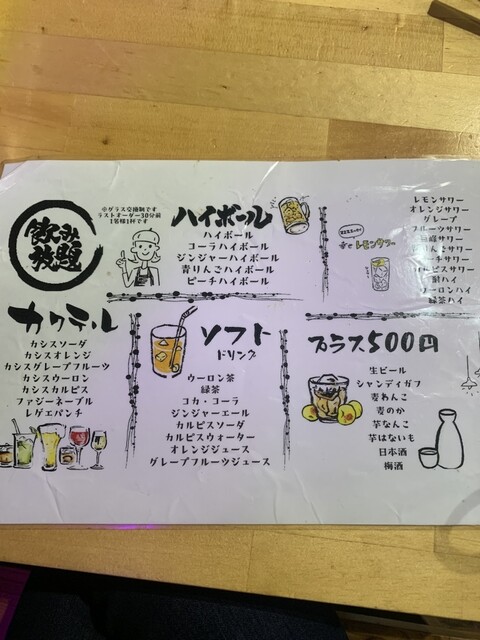 飲み
放題
※グラス交換制です
ラストオーダー30分前
1名様1杯です
ハイボール
ハイボール
コーラハイボール
ジンジャーハイボール
青りんごハイボール
ピーチハイボール
レモンサワー
レモンサワー
オレンジサワー
グレープ
フルーツサワー
サワー
サワー
サワー
ルピスサワー
酎ハイ
ーロンハイ
緑茶ハイ
カクテル
カシスソーダ
カシスオレンジ
カシスグレープフルーツ
カシスウーロン
カシスカルピス
ファジーネーブル
レゲエパンチ
ソフト
ドリンク
ウーロン茶
緑茶
コカ・コーラ
ジンジャーエール
カルピスソーダ
カルピスウォーター
オレンジジュース
グレープフルーツジュース
プラス500円
生ビール
シャンディガフ
麦わんこ
麦のか
芋なんこ
芋はないも
日本酒
梅酒